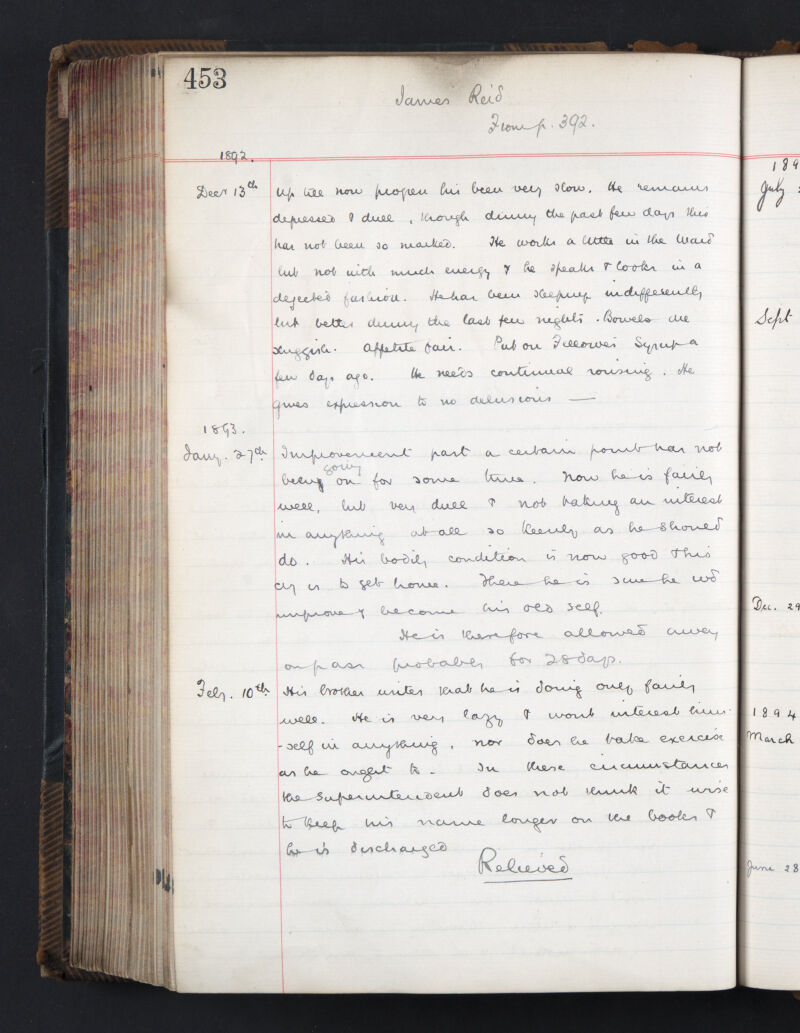 453
James Reid
From p. 392.
1892.
Decr 13th Up till now progress has been very slow. He remains
depressed & dull, though during the past few days this
has not been so marked. He works a little in the Ward
but not with much energy & he speaks & looks in a
dejected fashion. He has been sleeping indifferently
but better during the last few nights. Bowels are
sluggish. Appetite fair. Put on Fellowes Syrup a
few days ago. He needs continual rousing. He
gives expression to no delusions —
1893.
Jany. 27th Improvement past a certain point has not
going
being on for some time. Now he is fairly
well, but very dull & not taking an interest
in anything at all so keenly as he should
do. His bodily condition is now good & his
cry is to get home. There he is sure he wd
improve & become his old self.
He is therefore allowed away
on pass probably for 28 days.
Feby. 10th His brother writes that he is doing only fairly
well. He is very lazy & wont interest him-
-self in anything, nor does he take exercise
as he ought to. In these circumstances
the Superintendent does not think it wise
to keep his name longer on the books &
he is discharged
Relieved
189
July
Sept
Dec. 29
1894
March
June 28